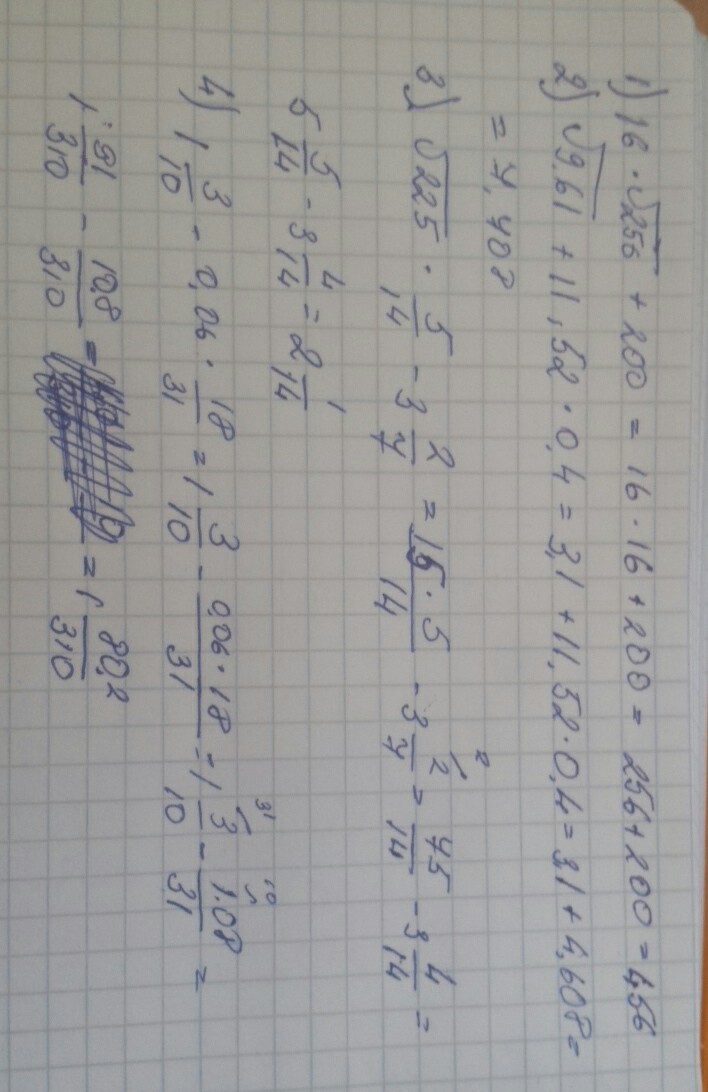 1) 16 · √256 + 200 = 16 · 16 + 200 = 256 + 200 = 456
2) √9,61 + 11,52 · 0,4 = 3,1 + 11,52 · 0,4 = 3,1 + 4,608 =
= 7,708
3) √225 · 5/14 - 3 2/7 = 15 · 5/14 - 3 2/7 = 75/14 - 3 4/14 =
5 5/14 - 3 4/14 = 2 1/14
4) 1 3/10 - 0,06 · 18/31 = 1 3/10 - 0,06 · 18/31 = 1 3/10 - 1.08/31 =
1 91/310 - 10,8/310 = = 1 80,2/310